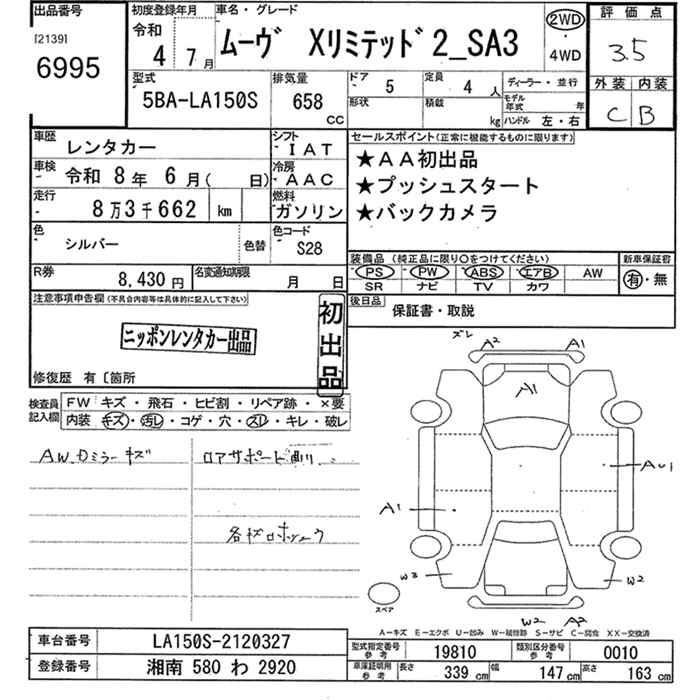 出品番号
[2139]
6995
初度登録年月
令和
4 年 7 月
車名・グレード
ムーヴ Xリミテッドﾞ2_SA3
2WD
・
4WD
評価点
3.5
外装 内装
C B
型式
5BA-LA150S
排気量
658
CC
ドア
5
定員
4 人
形状
積載
kg
ディーラー・並行
モデル年式 年
ハンドル 左・右
車歴
レンタカー
シフト
IAT
車検
令和 8 年 6 月( 日)
冷房
AAC
走行
8万3千662 km
燃料
ガソリン
色
シルバー
色替
色コード
S28
R券
8,430 円
名変通知期限
月 日
セールスポイント(正常に機能するものに限ります)
★AA初出品
★プッシュスタート
★バックカメラ
装備品 (純正品に限り○をつけてください)
PS PW ABS エアB AW
SR ナビ TV カワ
新車保証書
有・無
後日品
保証書・取説
注意事項申告欄(不具合内容等は具体的に記入して下さい)
ニッポンレンタカー出品
初出品
修復歴 有〔箇所
検査員記入欄
FW キズ・飛石・ヒビ割・リペア跡・×要
内装 キズ・汚レ・コゲ・穴・スレ・キレ・破レ
AW、ドミラーキズ
ロアサポート凹
ズレ
A2 A1
A1
AU1
A1
W3
W2
スペア
W2 A2
A－キズ E－エクボ U－凹み W－補修跡 S－サビ C－腐食 XX－交換済
車台番号
LA150S-2120327
登録番号
湘南 580 わ 2920
型式指定番号
参考
19810
類別区分番号
参考
0010
車庫証明用
参考
長さ
339 cm
幅
147 cm
高さ
163 cm